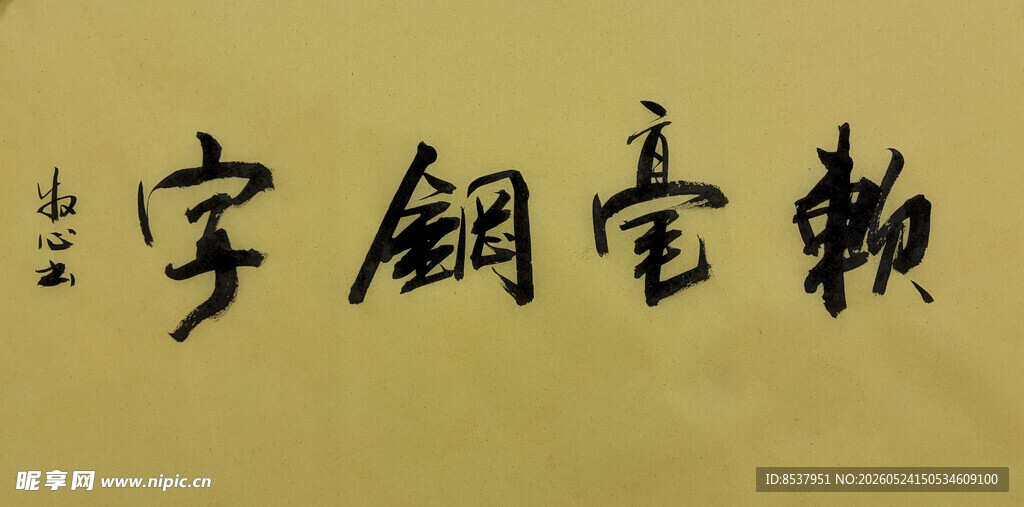 赖毫鋼字
牧心书
昵享网 www.nipic.cn
ID:8537951 NO:20260524150534609100